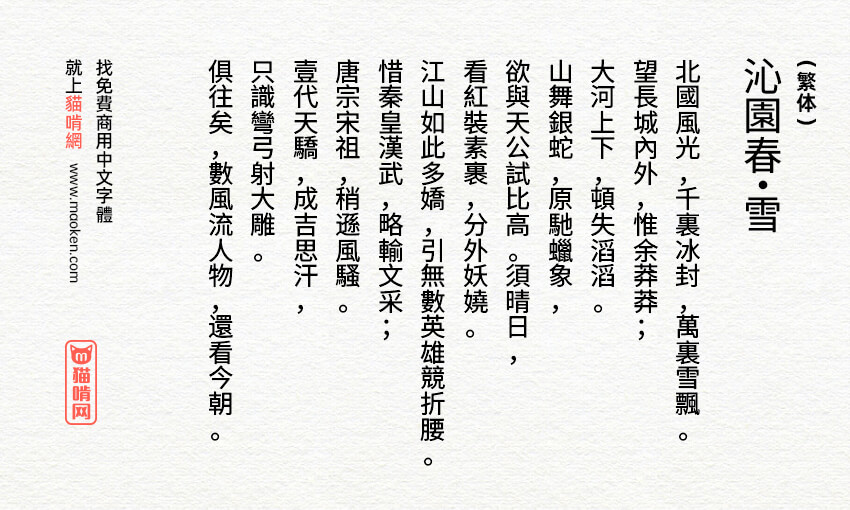 (繁体)
沁園春·雪
北國風光,千裏冰封,萬裏雪飄。
望長城內外,惟余莽莽;
大河上下,頓失滔滔。
山舞銀蛇,原馳蠟象,
欲與天公試比高。須晴日,
看紅裝素裹,分外妖嬈。
江山如此多嬌,引無數英雄競折腰。
惜秦皇漢武,略輸文采;
唐宗宋祖,稍遜風騷。
壹代天驕,成吉思汗,
只識彎弓射大雕。
俱往矣,數風流人物,還看今朝。
找免費商用中文字體
就上貓啃網 www.mooken.com
猫啃网